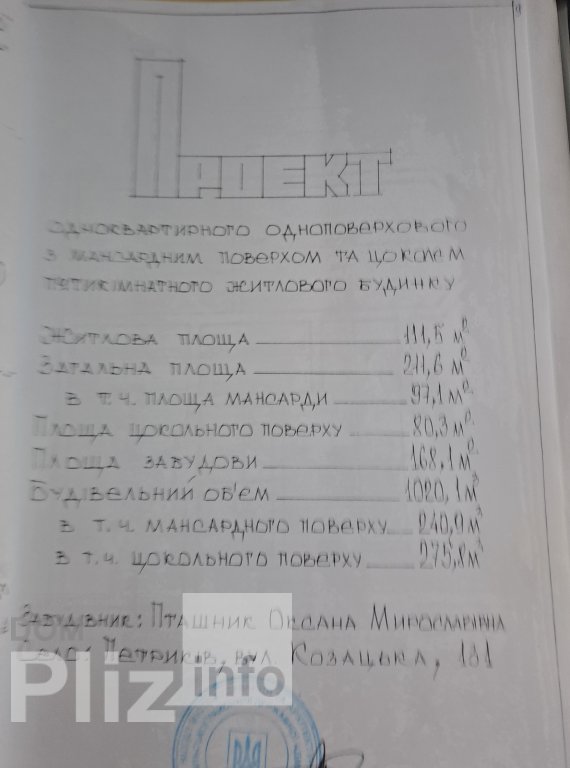 Проект
одноквартирного одноповерхового
з мансардним поверхом та цоколем
петикімнатного житлового будинку
Житлова площа 111,5 м²
Загальна площа 211,6 м²
в т.ч. площа мансарди 97,1 м²
Площа цокольного поверху 80,3 м²
Площа забудови 168,1 м²
Будівельний об'єм 1020,1 м³
в т.ч. мансардного поверху 240,9 м³
в т.ч. цокольного поверху 275,8 м³
Забудівник: Пташник Оксана Мирославівна
Село: Петриків, вул Козацька, 131
DOM
Pliz info